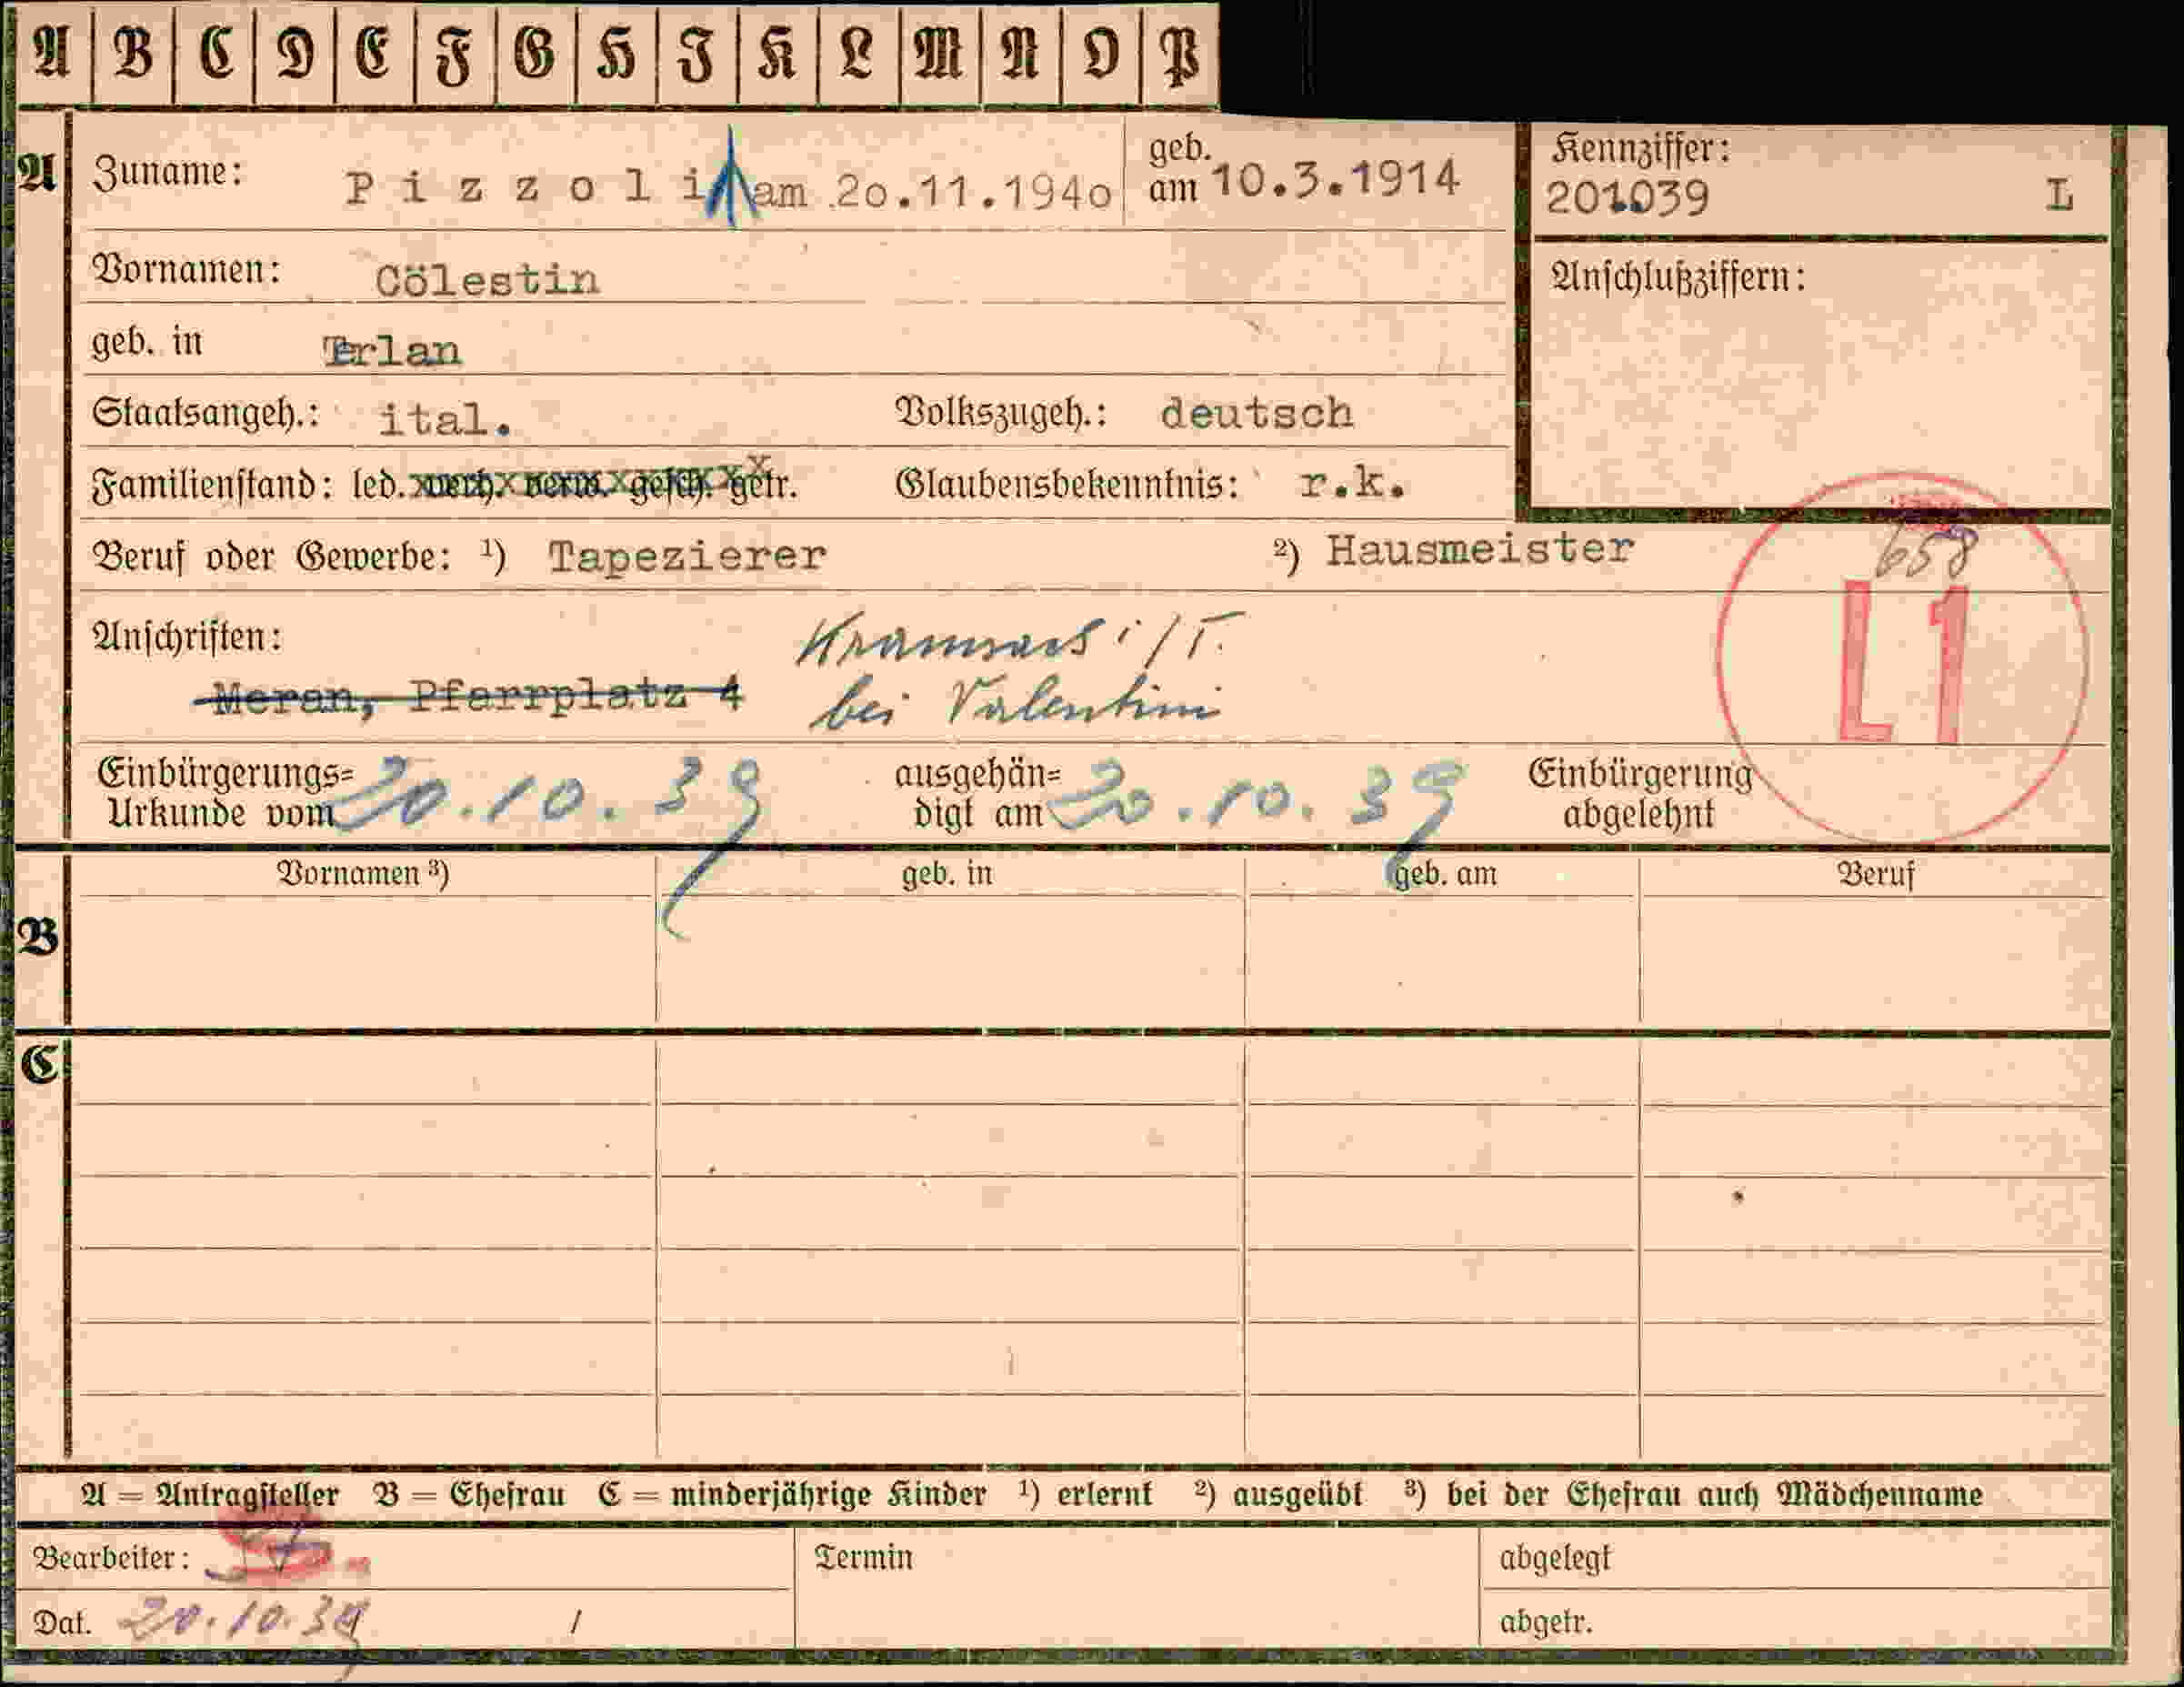 A B C D E F G H I K L M N O P
A Zuname: Pizzoli am 20.11.1940 geb. am 10.3.1914 Kennziffer: 201039 L
Vornamen: Cölestin Anschlußziffern:
geb. in Terlan
Staatsangeh.: ital. Volkszugeh.: deutsch
Familienstand: led. verh. verw. gesch. getr. Glaubensbekenntnis: r.k.
Beruf oder Gewerbe: ¹) Tapezierer ²) Hausmeister 658
L1
Anschriften: i/T.
Meran, Pfarrplatz 4 bei Valentini
Einbürgerungs= 20.10.39 ausgehän= 20.10.39 Einbürgerung
Urkunde vom digt am abgelehnt
Vornamen ³) geb. in geb. am Beruf
B
C
A = Antragsteller B = Ehefrau C = minderjährige Kinder ¹) erlernt ²) ausgeübt ³) bei der Ehefrau auch Mädchenname
Bearbeiter: Termin abgelegt
Dat. 20.10.39 / abgetr.